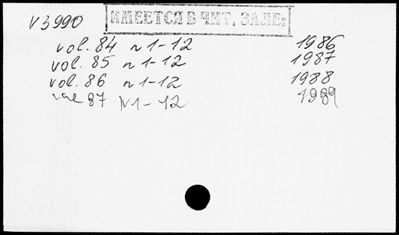 V3990
ИМЕЕТСЯ В ЧИТ. ЗАЛЕ:
vol. 84 n 1-12 1986
vol. 85 n 1-12 1987
vol. 86 n 1-12 1988
vol 87 N 1-12 1989